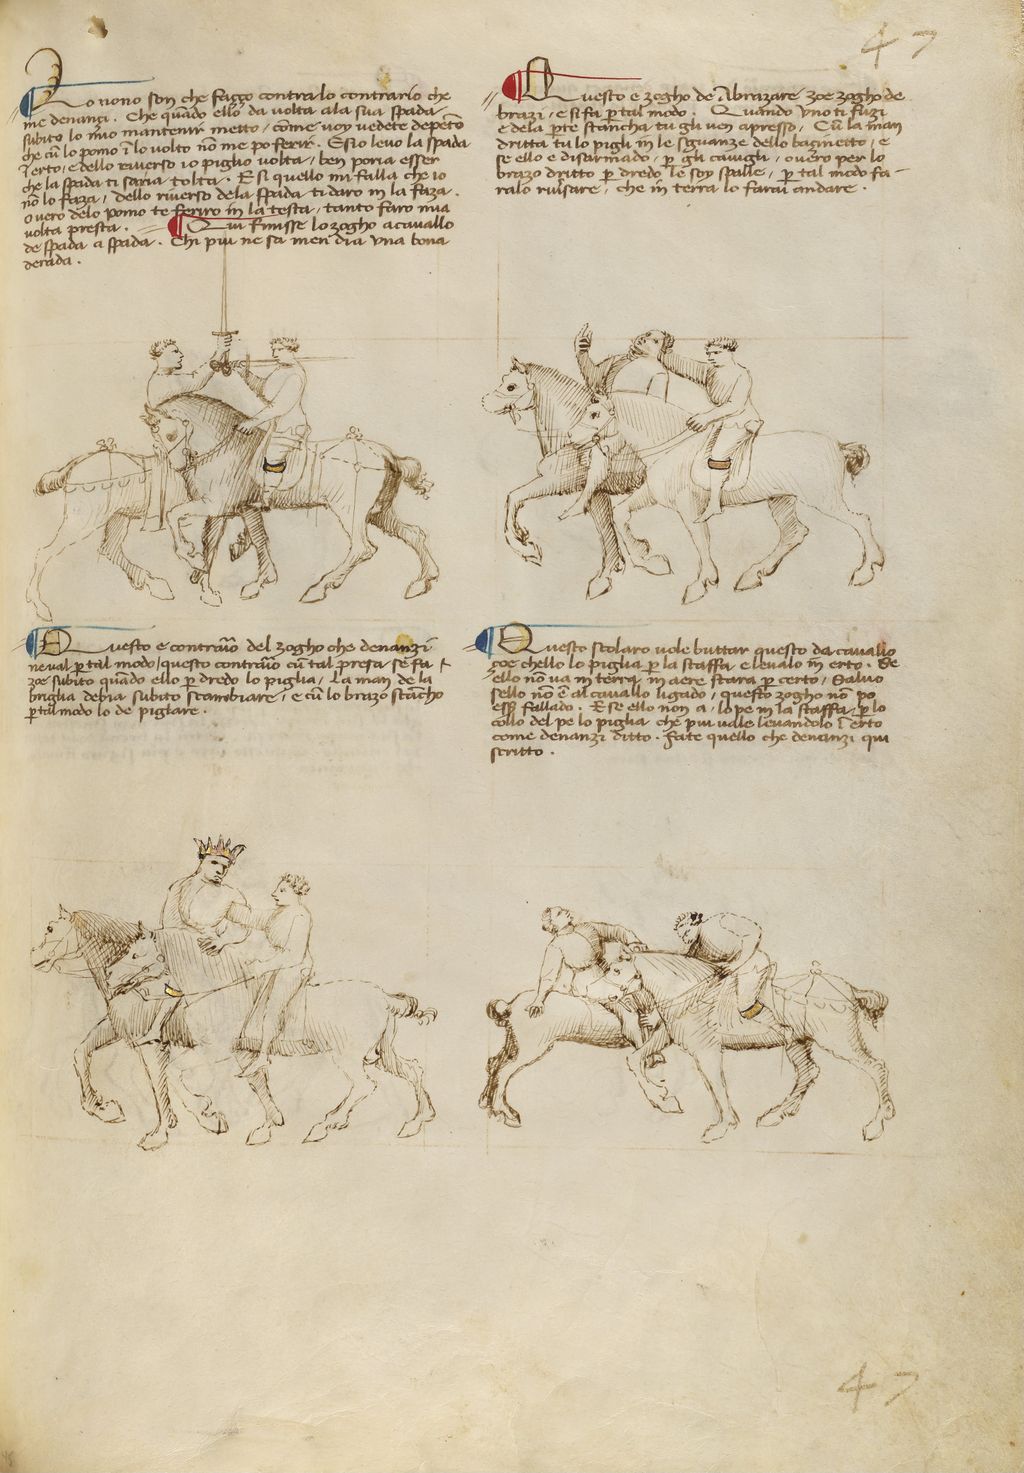 47
Lo nono son che fazzo contra lo contrario che
me denanzi. Che quãdo ello da volta ala sua spada
subito lo mio mantenir metto / come voy vedete depento
che cũ lo pomo ĩ lo volto nõ me po ferir. E s'io levo la spada
ĩ erto / e dello riverso io piglio volta / ben poria esser
che la spada ti saria tolta. E si quello mi falla che io
nõ lo faza / dello riverso dela spada ti daro in la faza.
overo delo pomo te feriro in la testa / tanto faro mia
volta presta. Qui finisse lo zogho a cavallo
de spada a spada. Chi piu ne sa men dia una bona
derada.
Questo e zogho de Abrazare zoe zogho de
brazi / e si fa p tal modo. Quando uno ti fuzi
e dela pte stancha tu gli ven apresso / Cũ la man
dritta tu lo pigli in le sguanze dello bazinetto / e
se ello e disarmado / p gli cavigli / overo per lo
brazo dritto p dredo le soy spalle / p tal modo fa-
ralo riversare / che in terra lo farai andare.
Questo e contrario del zogho che denanzi
ne val p tal modo / questo contrario cũ tal presa se fa
zoe subito quãdo ello p dredo lo piglia / La man de la
briglia debia subito scambiare / e cũ lo brazo stãcho
p tal modo lo de pigliare.
Questo scolaro vole buttar questo da cavallo
zoe chello lo piglia p la staffa e levalo in erto. Se
ello nõ va in terra in aere stara p certo / Salvo
se llo nõ ẽ al cavallo ligado / questo zogho nõ po
essr fallado. E se ello non a lo pe in la staffa / p lo
collo del pe lo piglia che piu vale levandolo ĩ erto
come denanzi ditto. fate quello che denanzi qui
scritto.
47